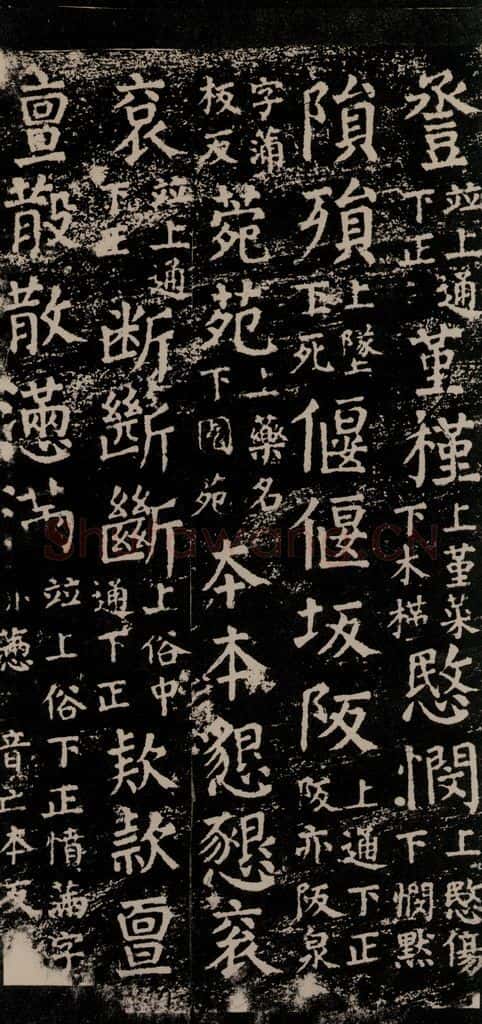 𧯷竝上通下正菫槿上菫菜下木槿愍憫上愍傷下憫默
隕殞上墜下死偃偃坂阪上通下正阪亦阪泉
字蒲板反菀苑上藥名下園苑夲本懇懇衮
衮竝上通下正断㫁斷上俗中通下正欵款亶
亶散散懣滿竝上俗下正憤滿字音亡本反
Shufawang.CN